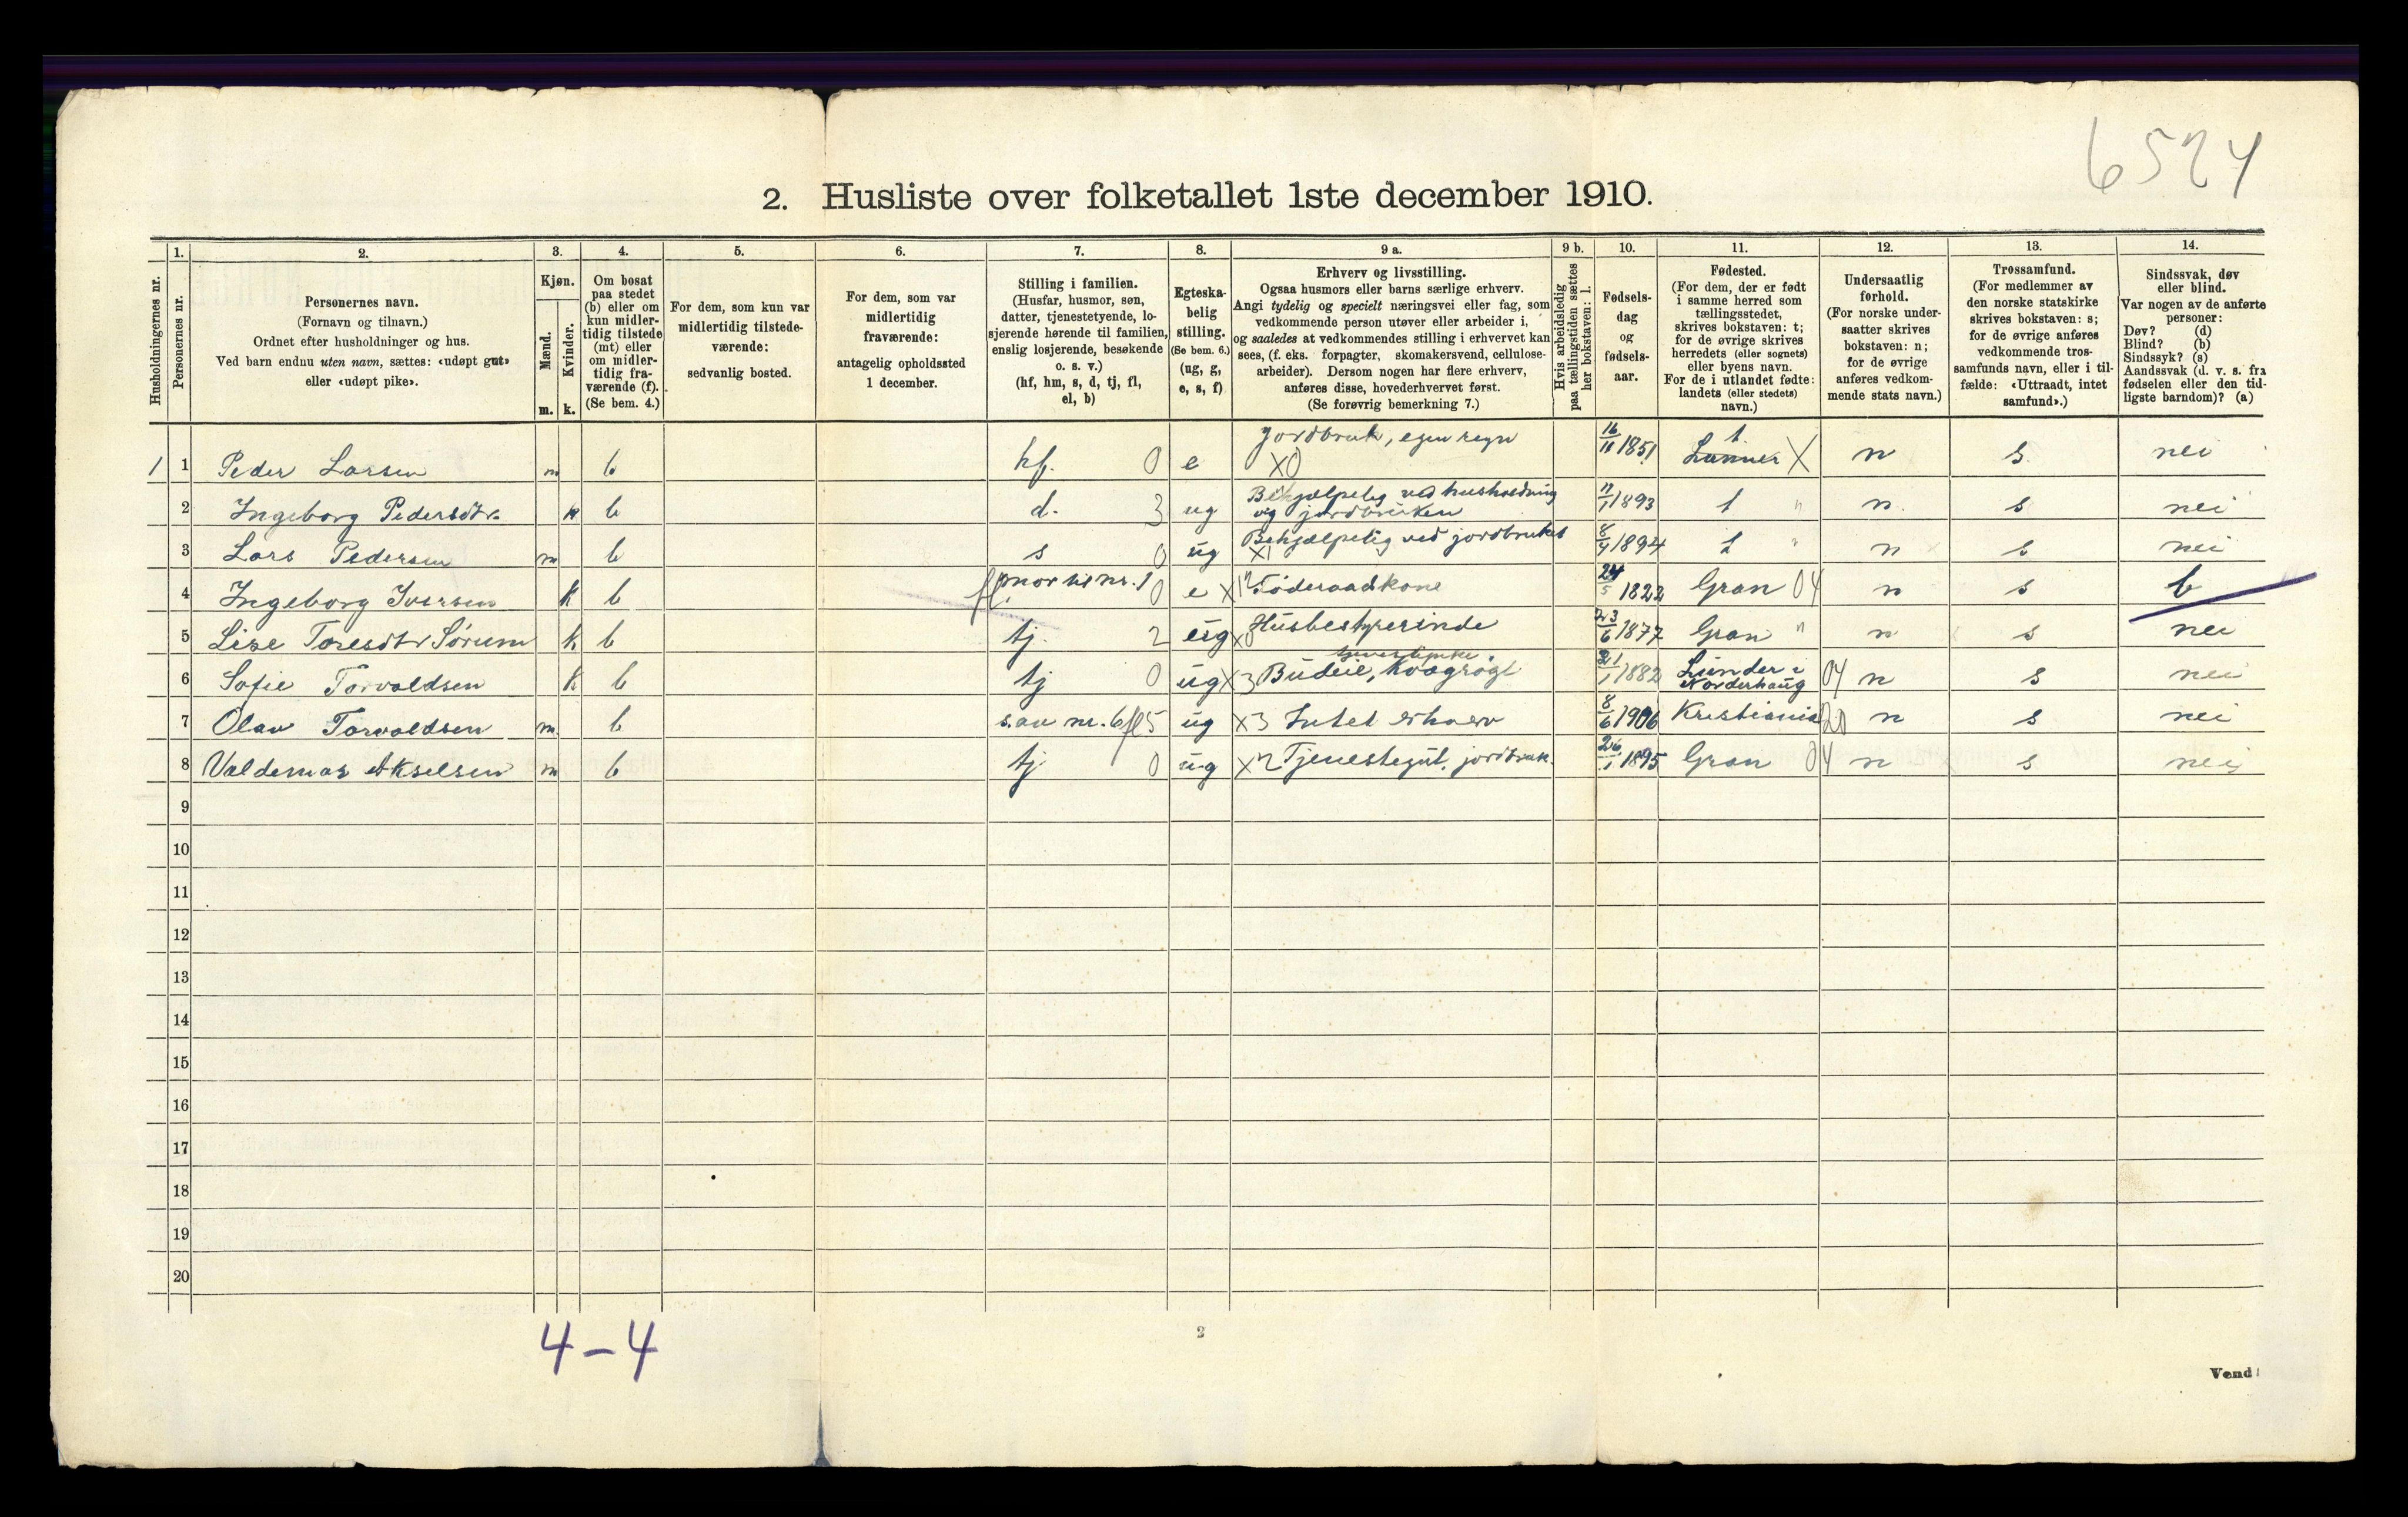 6524
2. Husliste over folketallet 1ste december 1910.
Husholdningernes nr.
1.
Personernes nr.
2.
Personernes navn.
(Fornavn og tilnavn.)
Ordnet efter husholdninger og hus.
Ved barn endnu uten navn, sættes: «udøpt gut»
eller «udøpt pike».
3.
Kjøn.
Mænd.
Kvinder.
m. k.
4.
Om bosat
paa stedet
(b) eller om
kun midler-
tidig tilstede
(mt) eller
om midler-
tidig fra-
værende (f).
(Se bem. 4.)
5.
For dem, som kun var
midlertidig tilstede-
værende:
sedvanlig bosted.
6.
For dem, som var
midlertidig
fraværende:
antagelig opholdssted
1 december.
7.
Stilling i familien.
(Husfar, husmor, søn,
datter, tjenestetyende, lo-
sjerende hørende til familien,
enslig losjerende, besøkende
o. s. v.)
(hf, hm, s, d, tj, fl,
el, b)
8.
Egteska-
belig
stilling.
(Se bem. 6.)
(ug, g,
e, s, f)
9 a.
Erhverv og livsstilling.
Ogsaa husmors eller barns særlige erhverv.
Angi tydelig og specielt næringsvei eller fag, som
vedkommende person utøver eller arbeider i,
og saaledes at vedkommendes stilling i erhvervet kan
sees, (f. eks. forpagter, skomakersvend, cellulose-
arbeider). Dersom nogen har flere erhverv,
anføres disse, hovederhvervet først.
(Se forøvrig bemerkning 7.)
9 b.
Hvis arbeidsledig
paa tællingstiden sættes
her bokstaven: l.
10.
Fødsels-
dag
og
fødsels-
aar.
11.
Fødested.
(For dem, der er født
i samme herred som
tællingsstedet,
skrives bokstaven: t;
for de øvrige skrives
herredets (eller sognets)
eller byens navn.
For de i utlandet fødte:
landets (eller stedets)
navn.)
12.
Undersaatlig
forhold.
(For norske under-
saatter skrives
bokstaven: n;
for de øvrige
anføres vedkom-
mende stats navn.)
13.
Trossamfund.
(For medlemmer av
den norske statskirke
skrives bokstaven: s;
for de øvrige anføres
vedkommende tros-
samfunds navn, eller i til-
fælde: «Uttraadt, intet
samfund».)
14.
Sindssvak, døv
eller blind.
Var nogen av de anførte
personer:
Døv? (d)
Blind? (b)
Sindssyk? (s)
Aandssvak (d. v. s. fra
fødselen eller den tid-
ligste barndom)? (a)
1 1 Peder Larsen m b hf. 0 e Jordbruk, egen regn X0 16/11 1851 t Lunner X n s nei
2 Ingeborg Pedersdtr. k b d. 3 ug Behjælpelig ved husholdning og jordbruken 1893 t " n s nei
3 Lars Pedersen m b s 0 ug Behjælpelig ved jordbruket X1 1894 t " n s nei
4 Ingeborg Iversen k b fl. mor til nr. 1 0 e Føderaadkone 24/5 1822 Gran 04 n s b
5 Lise Toresdtr Sørum k b tj. 2 ug Husbestyrerinde 23/6 1877 Gran " n s nei
6 Sofie Torvaldsen k b tj 0 ug X3 Budeie, Kvægrøgt 21/1 1882 Lunder i Norderhaug 04 n s nei
7 Olav Torvaldsen m. b s. av nr. 6 fl 5 ug X3 Intet erhverv 8/6 1906 Kristiania 20 n s nei
8 Valdemar Akselsen m b tj. 0 ug Tjenestegut, jordbruk. 26/1 1895 Gran 04 n s nei
9
10
11
12
13
14
15
16
17
18
19
20
4-4
2
Vend